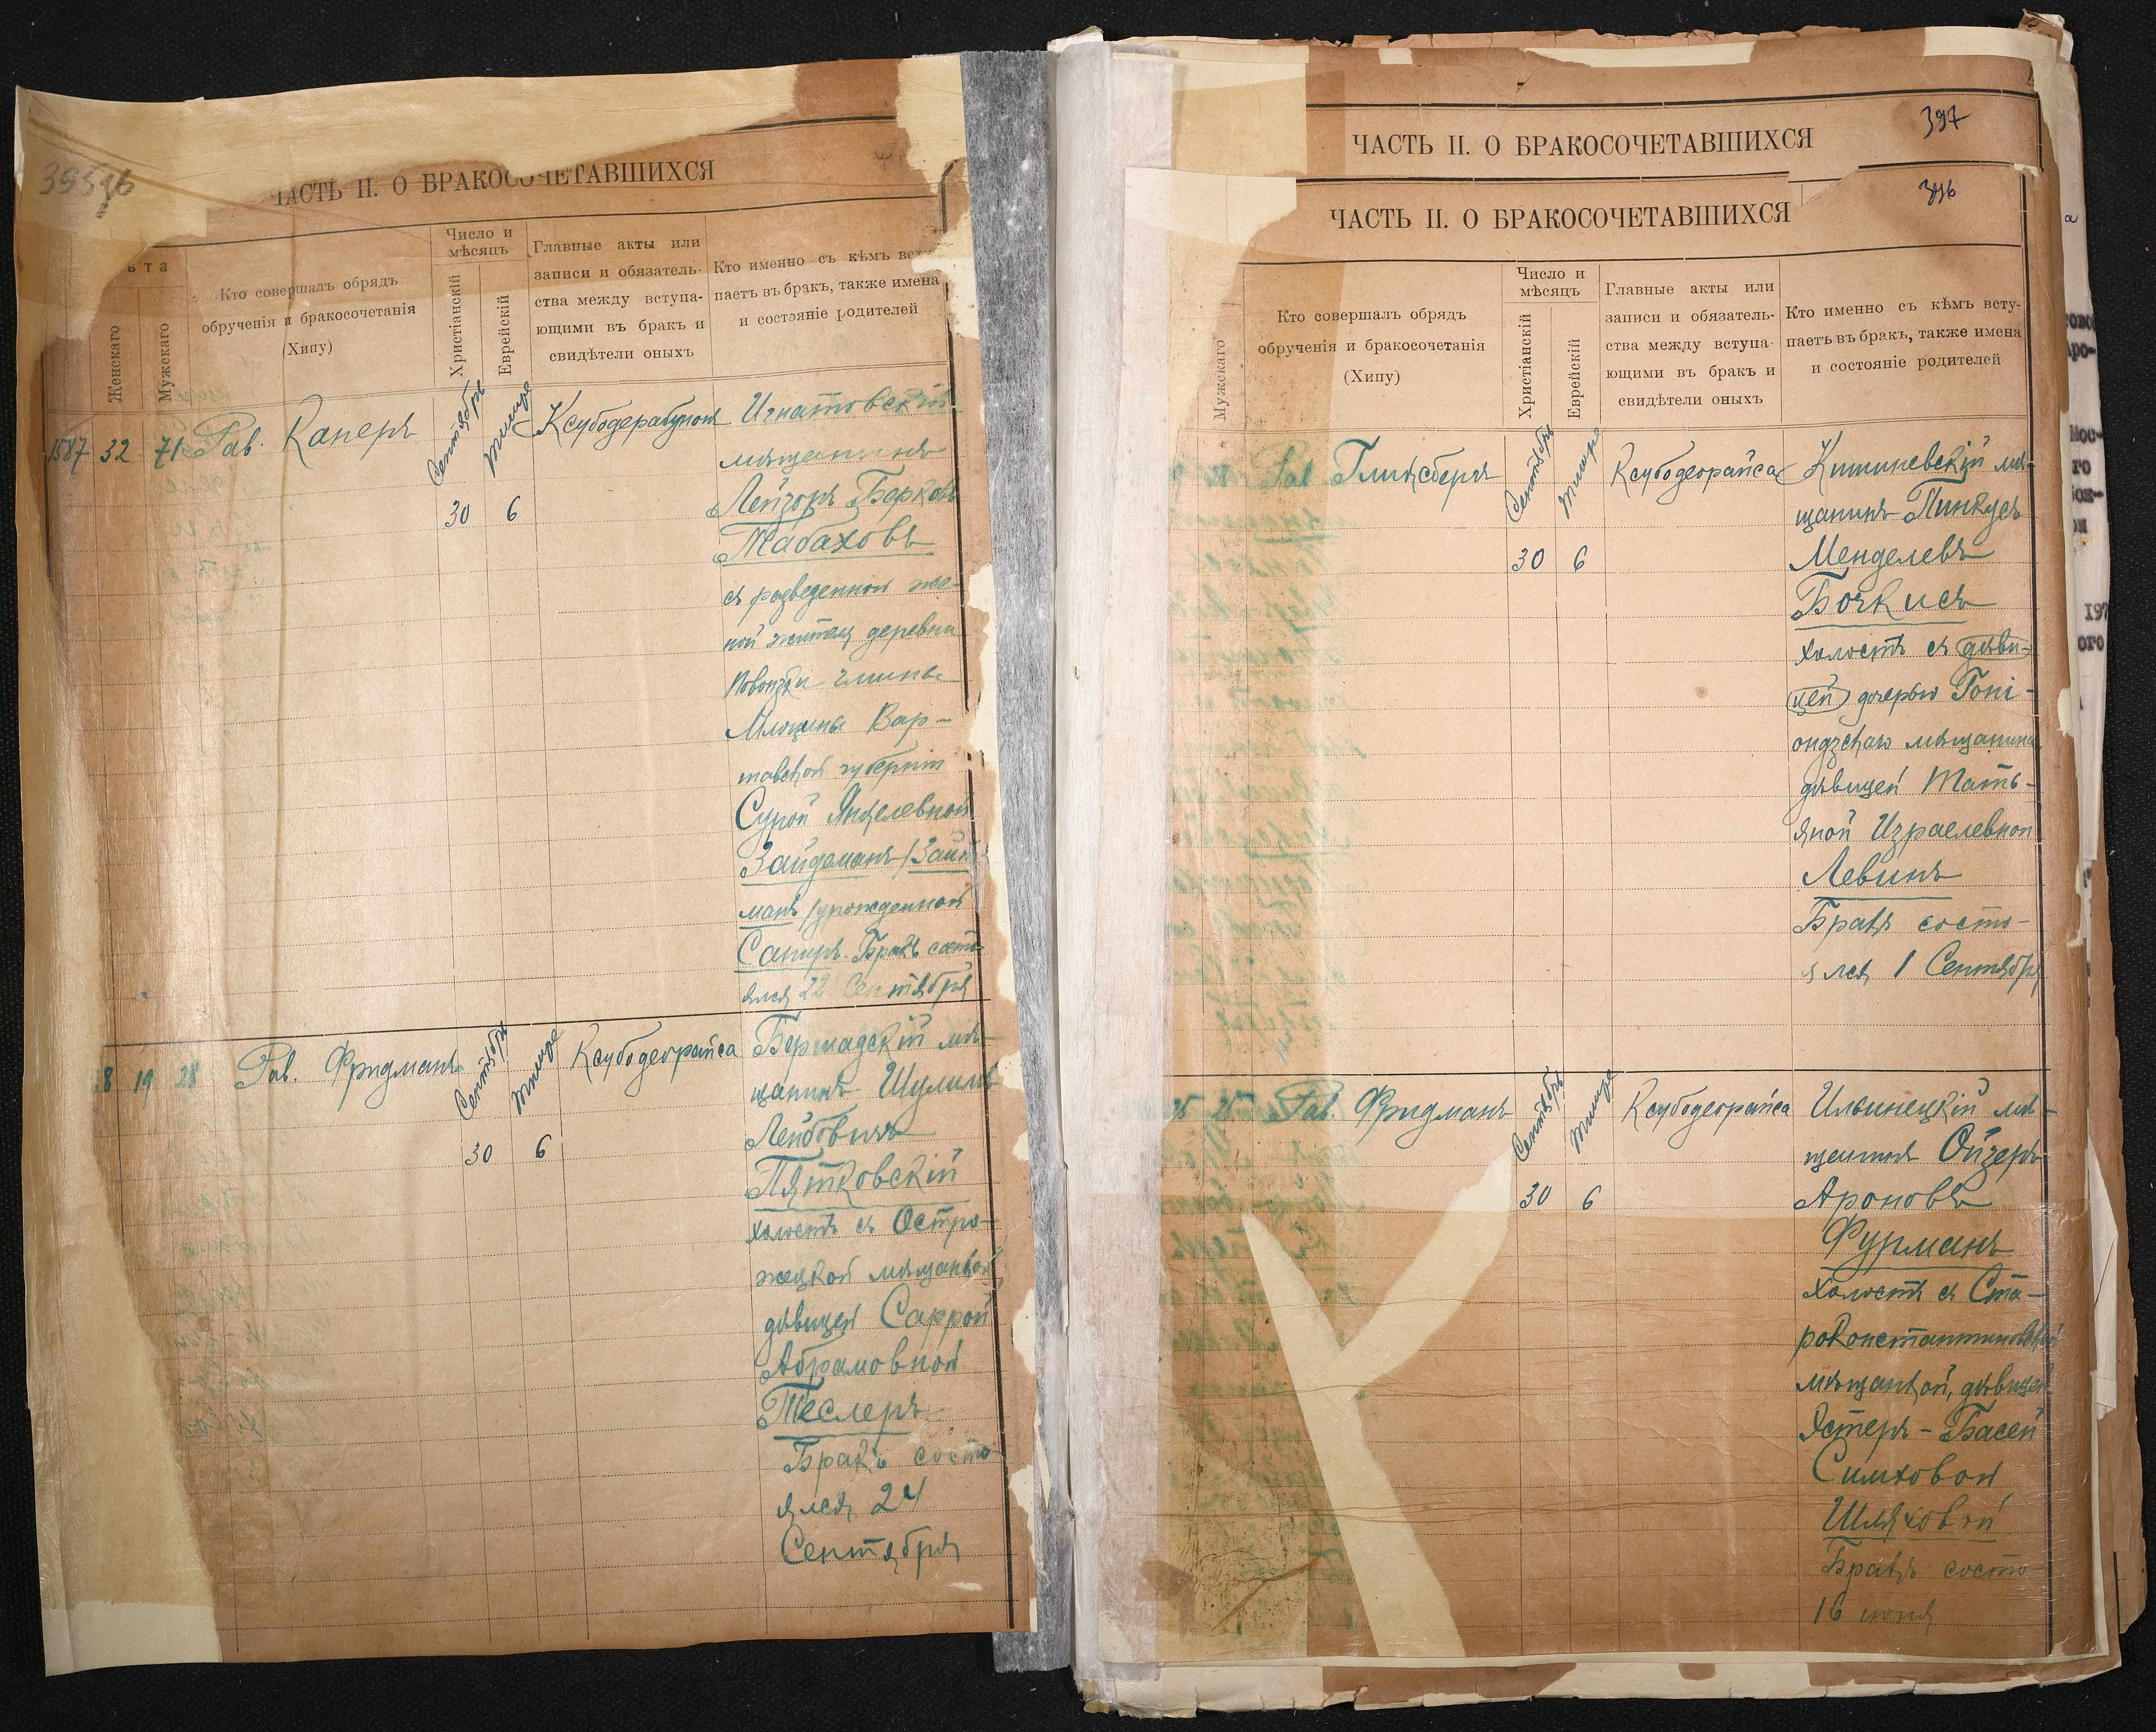 ЧАСТЬ II. О БРАКОСОЧЕТАВШИХСЯ
Кто совершалъ обрядъ
обрученія и бракосочетанія
(Хипу)
Женскаго
Мужскаго
Число и
мѣсяцъ
Христіанскій
Еврейскій
Главные акты или
записи и обязатель-
ства между вступа-
ющими въ бракъ и
свидѣтели оныхъ
Кто именно съ кѣмъ вст
паетъ въ бракъ, также имена
и состояніе родителей
1587 32 71 Рав. Каперъ
Сентябрь
Тишре
30 6
Игнатовскій
мѣщанинъ
Лейзоръ Берков
Табаховъ
съ разведенной же-
ной жителя деревни
Повонзки гмины
Млоцины Вар-
шавской губерніи
Сурой Янкелевной
Зайдеманъ /Зайд
манъ/ урожденной
Сапиръ. Бракъ состо
ялся 22 Сентября
8 19 28 Рав. Фридманъ
Сентябрь
Тишре
30 6
Ксубодеорайса
Бершадскій мѣ-
щанинъ Шулимъ
Лейбовичъ
Пятковскій
холостъ съ Остро-
жецкой мѣщанкой
дѣвицей Саррой
Абрамовной
Теслеръ
Бракъ состо-
ялся 24
Сентября
397
ЧАСТЬ II. О БРАКОСОЧЕТАВШИХСЯ
396
ЧАСТЬ II. О БРАКОСОЧЕТАВШИХСЯ
Мужскаго
Кто совершалъ обрядъ
обрученія и бракосочетанія
(Хипу)
Число и
мѣсяцъ
Христіанскій
Еврейскій
Главные акты или
записи и обязатель-
ства между вступа-
ющими въ бракъ и
свидѣтели оныхъ
Кто именно съ кѣмъ всту-
паетъ въ бракъ, также имена
и состояніе родителей
Рав. Глинсбергъ
Сентябрь
Тишре
30 6
Ксубодеорайса
Кишиневскій мѣ-
щанинъ Пинкусъ
Менделевъ
Бочкисъ
холостъ съ дѣви-
цей дочерью Гоні-
ондзскаго мѣщанина
дѣвицей Тать-
яной Израелевной
Левинъ
Бракъ состо-
ялся 1 Сентября
25 Рав. Фридманъ
Сентябрь
Тишре
30 6
Ксубодеорайса
Ильинецкій мѣ-
щанинъ Ойзеръ
Ароновъ
Фурманъ
холостъ съ Ста-
роконстантиновской
мѣщанкой, дѣвицей
Эстеръ-Басей
Симховой
Шляховой
Бракъ состо-
16 іюня